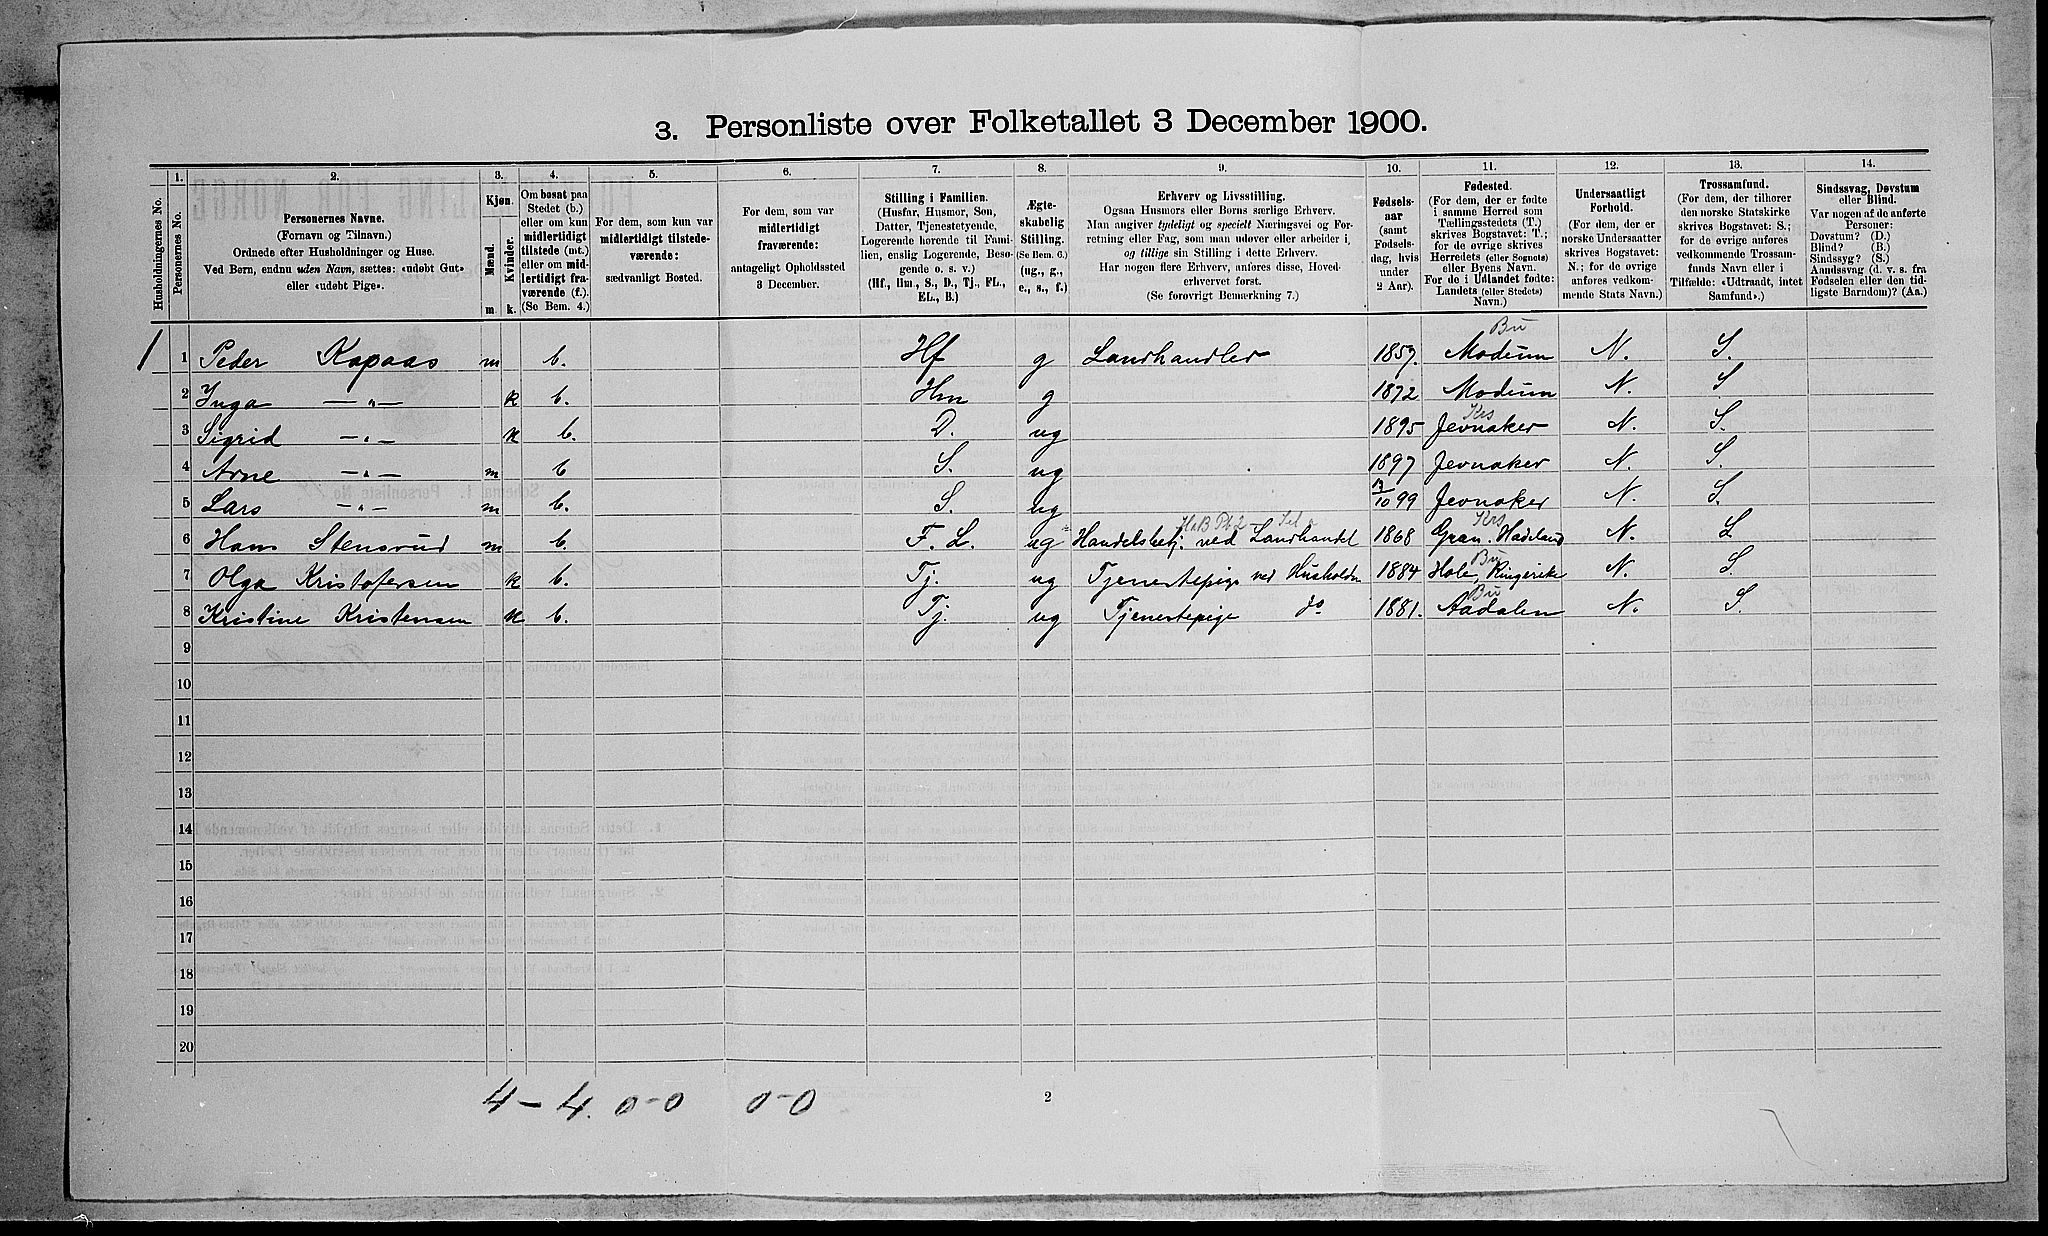 3. Personliste over Folketallet 3 December 1900.
Husholdningernes No.
1. Personernes No.
2. Personernes Navne.
(Fornavn og Tilnavn.)
Ordnede efter Husholdninger og Huse.
Ved Børn, endnu uden Navn, sættes: «udøbt Gut»
eller «udøbt Pige».
3. Kjøn.
Mænd. m
Kvinder. k.
4. Om bosat paa
Stedet (b.)
eller om kun
midlertidigt
tilstede (mt.)
eller om mid-
lertidigt fra-
værende (f.)
(Se Bem. 4.)
5. For dem, som kun var
midlertidigt tilstede-
værende:
sædvanligt Bosted.
6. For dem, som var
midlertidigt
fraværende:
antageligt Opholdssted
3 December.
7. Stilling i Familien.
(Husfar, Husmor, Søn,
Datter, Tjenestetyende,
Logerende hørende til Fami-
lien, enslig Logerende, Besø-
gende o. s. v.)
(Hf., Hm., S., D., Tj., FL.,
EL., B.)
8. Ægte-
skabelig
Stilling.
(Se Bem. 6.)
(ug., g.,
e., s., f.)
9. Erhverv og Livsstilling.
Ogsaa Husmors eller Børns særlige Erhverv.
Man angiver tydeligt og specielt Næringsvei og For-
retning eller Fag, som man udøver eller arbeider i,
og tillige sin Stilling i dette Erhverv.
Har nogen flere Erhverv, anføres disse, Hoved-
erhvervet først.
(Se forøvrigt Bemærkning 7.)
10. Fødsels-
aar
(samt
Fødsels-
dag, hvis
under
2 Aar).
11. Fødested.
(For dem, der er fødte
i samme Herred som
Tællingsstedets (T.)
skrives Bogstavet: T.;
for de øvrige skrives
Herredets (eller Sognets)
eller Byens Navn.
For de i Udlandet fødte:
Landets (eller Stedets)
Navn.)
12. Undersaatligt
Forhold.
(For dem, der er
norske Undersaatter
skrives Bogstavet:
N.; for de øvrige
anføres vedkom-
mende Stats Navn.)
13. Trossamfund.
(For dem, der tilhører
den norske Statskirke
skrives Bogstavet: S.;
for de øvrige anføres
vedkommende Trossam-
funds Navn eller i
Tilfælde: «Udtraadt, intet
Samfund».)
14. Sindssvag, Døvstum
eller Blind.
Var nogen af de anførte
Personer:
Døvstum? (D.)
Blind? (B.)
Sindssyg? (S.)
Aandssvag (d. v. s. fra
Fødselen eller den tid-
ligste Barndom)? (Aa.)
Bu
1 1 Peder Kopaas m b. Hf g Landhandler 1857. Modum N. S.
2 Inga —„— k b. Hm g 1872 Modum N. S
Krs
3 Sigrid —„— k b. D. ug 1895 Jevnaker N. S.
4 Arne —„— m b S. ug 1897 Jevnaker N. S.
5 Lars —„— m b. S. ug 10 99 Jevnaker N. S.
Krs
6 Hans Stensrud m b. F. L. ug Handelsbetj. ved Landhandel 1868 Gran. Hadeland N. S
Bu
7 Olga Kristofersen k b. Tj. ug Tjenestepige ved Husholdn 1884 Hole, Ringerike N. S.
Bu
8 Kristine Kristensen k b. Tj. ug Tjenestepige do 1881. Aadalen N. S.
9
10
11
12
13
14
15
16
17
18
19
20
4 – 4. 0-0 0-0
2